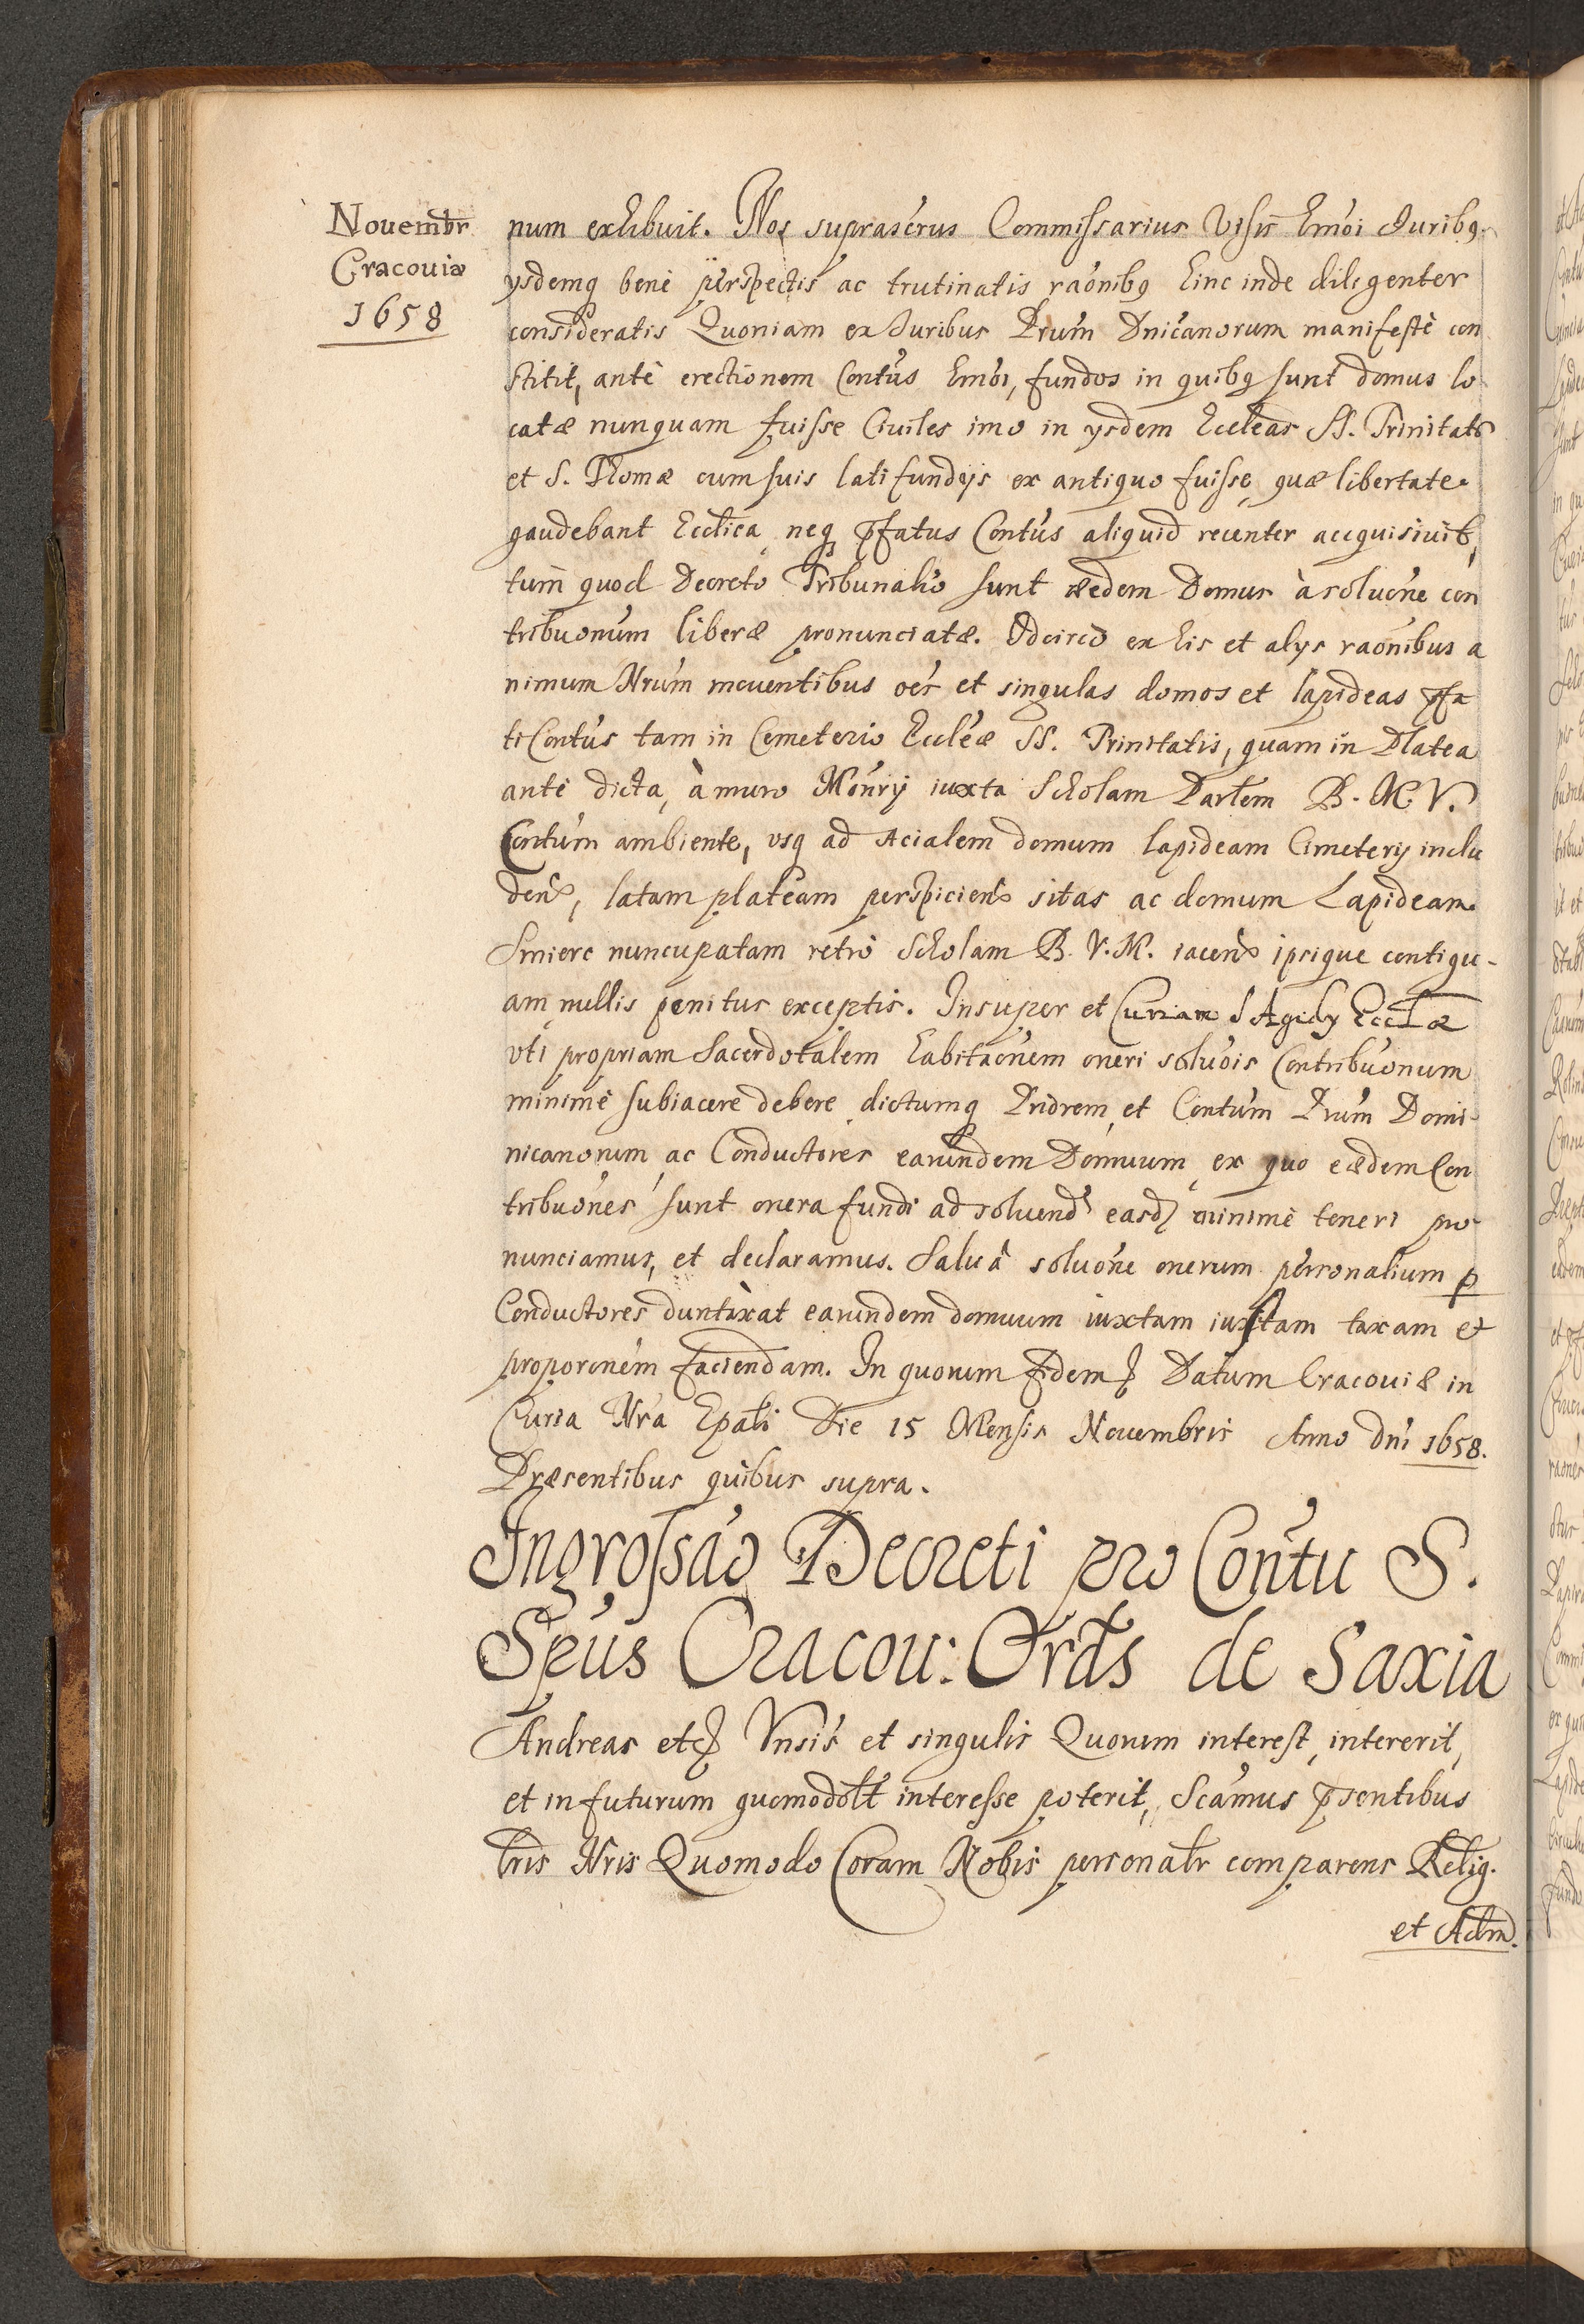 Nouembr
Cracouiæ
1658
num exhibuit. Nos suprascrus Commissarius Visis hmoi Juribq
ysdemq benè perspectis ac trutinatis raonibq hinc inde diligenter
consideratis Quoniam ex Juribus Prum Dnicanorum manifestè con
stitit, antè erectionem Contus hmoi, fundos in quibq sunt domus lo
catæ nunquam fuisse Ciuiles imo in ysdem Eccleas SS. Trinitatis
et S. Thomæ cum suis latifundijs ex antiquo fuisse, quæ libertate
gaudebant Ecclica, neq pfatus Contus aliquid recenter acquisiuit,
tum quod Decreto Tribunalio sunt eædem Domus à soluone con
tribuonum liberæ pronunciatæ. Idcircò ex his et alys raonibus a
nimum Nrum mouentibus oes et singulas domos et lapideas pfa
ti Contus tam in Cemeterio Eccleæ SS. Trinitatis, quam in Platea
antè dicta, à muro Monrij iuxta Scholam Partem B. M. V.
Contum ambiente, vsq ad Acialem domum lapideam Cimeterij inclu
den, latam plateam perspicien sitas ac domum Lapideam
Smierc nuncupatam retrò Scholam B. V. M. iacen ipsique contigu-
am, nullis penitus exceptis. Insuper et Curiam S Ægidy Ecclæ
vti propriam Sacerdotalem habitaonem oneri soluois Contribuonum
minimè subiacere debere, dictumq Priorem, et Contum Prum Domi
nicanorum, ac Conductores earundem Domuum, ex quo eædem Con
tribuones sunt onera fundi ad soluend easd minimè teneri pro
nunciamus, et declaramus. Saluâ soluone onerum personalium p
Conductores duntaxat earundem domuum iuxtam iustam taxam et
proporcnem faciendam. In quorum fidem Datum Cracouiæ in
Curia Nra Epali Die 15 Mensis Nouembris Anno Dni 1658.
Præsentibus quibus supra.
Ingrossao Decreti pro Contu S.
Spus Cracou: Ordis de Saxia
Andreas etc Vnsis et singulis Quorum interest, intererit,
et in futurum quomodolt interesse poterit, Scamus psentibus
Lris Nris Quomodo Coram Nobis personatr comparens Relig.
et Adm.